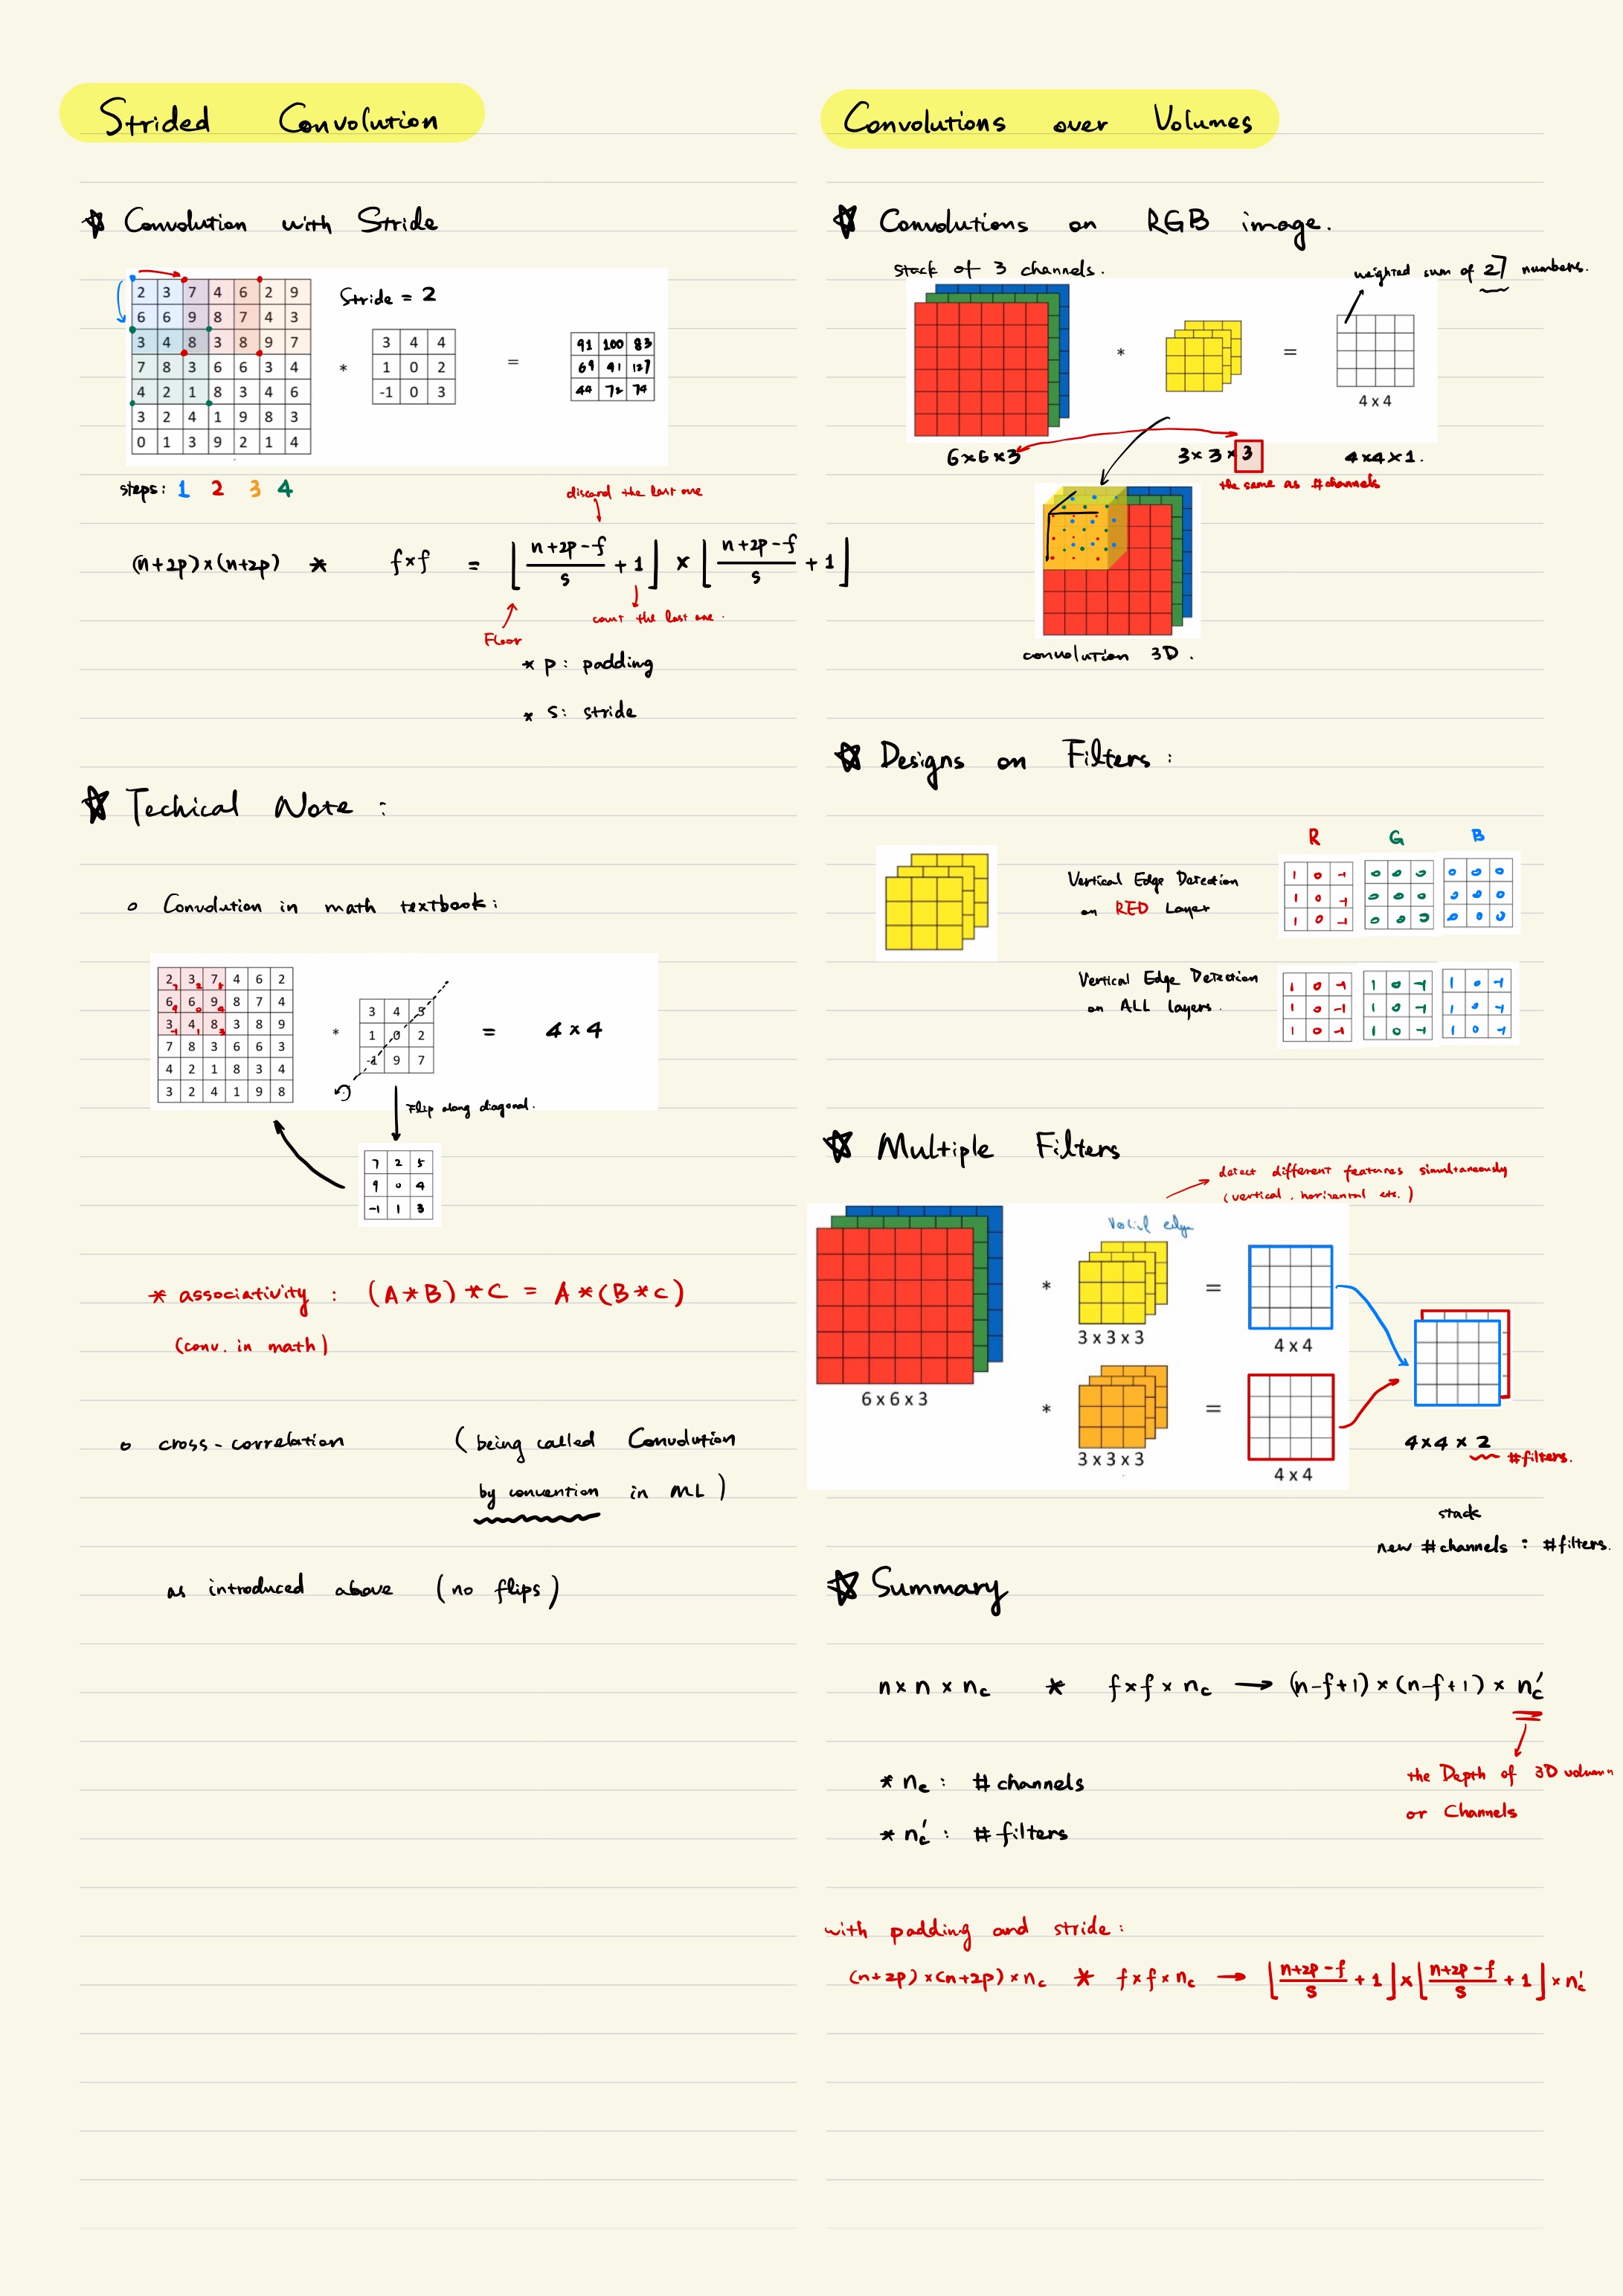 Strided Convolution
☆ Convolution with Stride
2 3 7 4 6 2 9
6 6 9 8 7 4 3
3 4 8 3 8 9 7
7 8 3 6 6 3 4
4 2 1 8 3 4 6
3 2 4 1 9 8 3
0 1 3 9 2 1 4
Stride = 2
*
3 4 4
1 0 2
-1 0 3
=
91 100 83
69 91 127
44 72 74
steps: 1 2 3 4
discard the last one
(n+2p)×(n+2p) * f×f = ⌊(n+2p-f)/s + 1⌋ × ⌊(n+2p-f)/s + 1⌋
Floor
count the last one.
* p: padding
* s: stride
☆ Techical Note:
o Convolution in math textbook:
2 3 7 4 6 2
6 6 9 8 7 4
3 4 8 3 8 9
7 8 3 6 6 3
4 2 1 8 3 4
3 2 4 1 9 8
7 2 5
9 0 4
-1 1 3
*
3 4 5
1 0 2
-1 9 7
= 4×4
Flip along diagonal.
7 2 5
9 0 4
-1 1 3
* associativity : (A*B)*C = A*(B*C)
(conv. in math)
o cross-correlation (being called Convolution
by convention in ML)
as introduced above (no flips)
Convolutions over Volumes
☆ Convolutions on RGB image.
stack of 3 channels.
weighted sum of 27 numbers.
* =
4 x 4
6×6×3 3×3×3 4×4×1.
the same as #channels
convolution 3D.
☆ Designs on Filters:
R G B
Vertical Edge Detection
on RED Layer
1 0 -1 0 0 0 0 0 0
1 0 -1 0 0 0 0 0 0
1 0 -1 0 0 0 0 0 0
Vertical Edge Detection
on ALL layers.
1 0 -1 1 0 -1 1 0 -1
1 0 -1 1 0 -1 1 0 -1
1 0 -1 1 0 -1 1 0 -1
☆ Multiple Filters
detect different features simultaneously
(vertical, horizontal etc.)
edge
* =
3 x 3 x 3 4 x 4
6 x 6 x 3
* =
3 x 3 x 3 4 x 4
4×4×2
#filters.
stack
new #channels : #filters.
☆ Summary
n×n×nc * f×f×nc → (n-f+1)×(n-f+1)×nc'
the Depth of 3D volumn
or Channels
* nc: #channels
* nc': #filters
with padding and stride:
(n+2p)×(n+2p)×nc * f×f×nc → ⌊(n+2p-f)/s + 1⌋×⌊(n+2p-f)/s + 1⌋×nc'